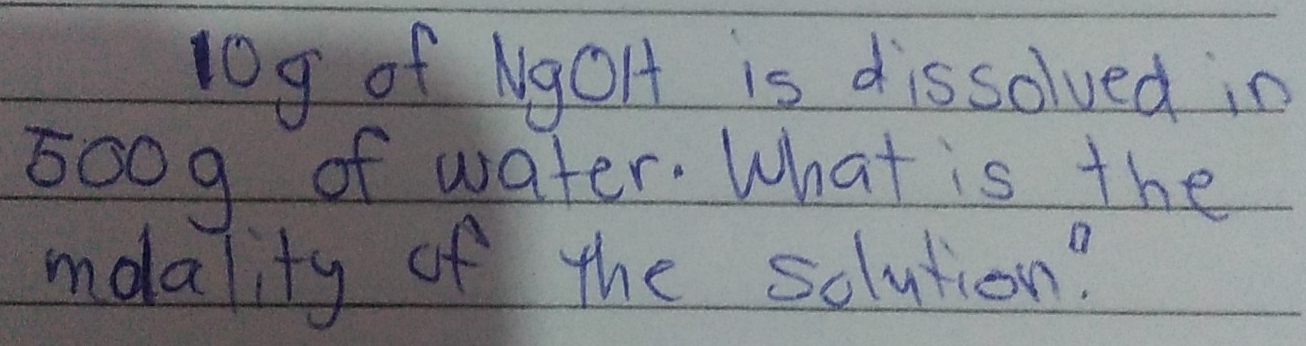 10g of NgOH is dissolved in
500g of water. What is the
molality of the solution?